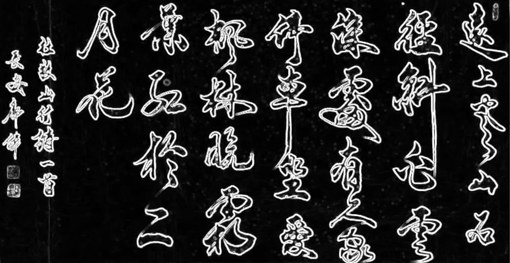 遠上寒山石
徑斜白雲
深處有人家
停車坐愛
楓林晚霜
葉紅於二
月花
杜牧山行詩一首
長安